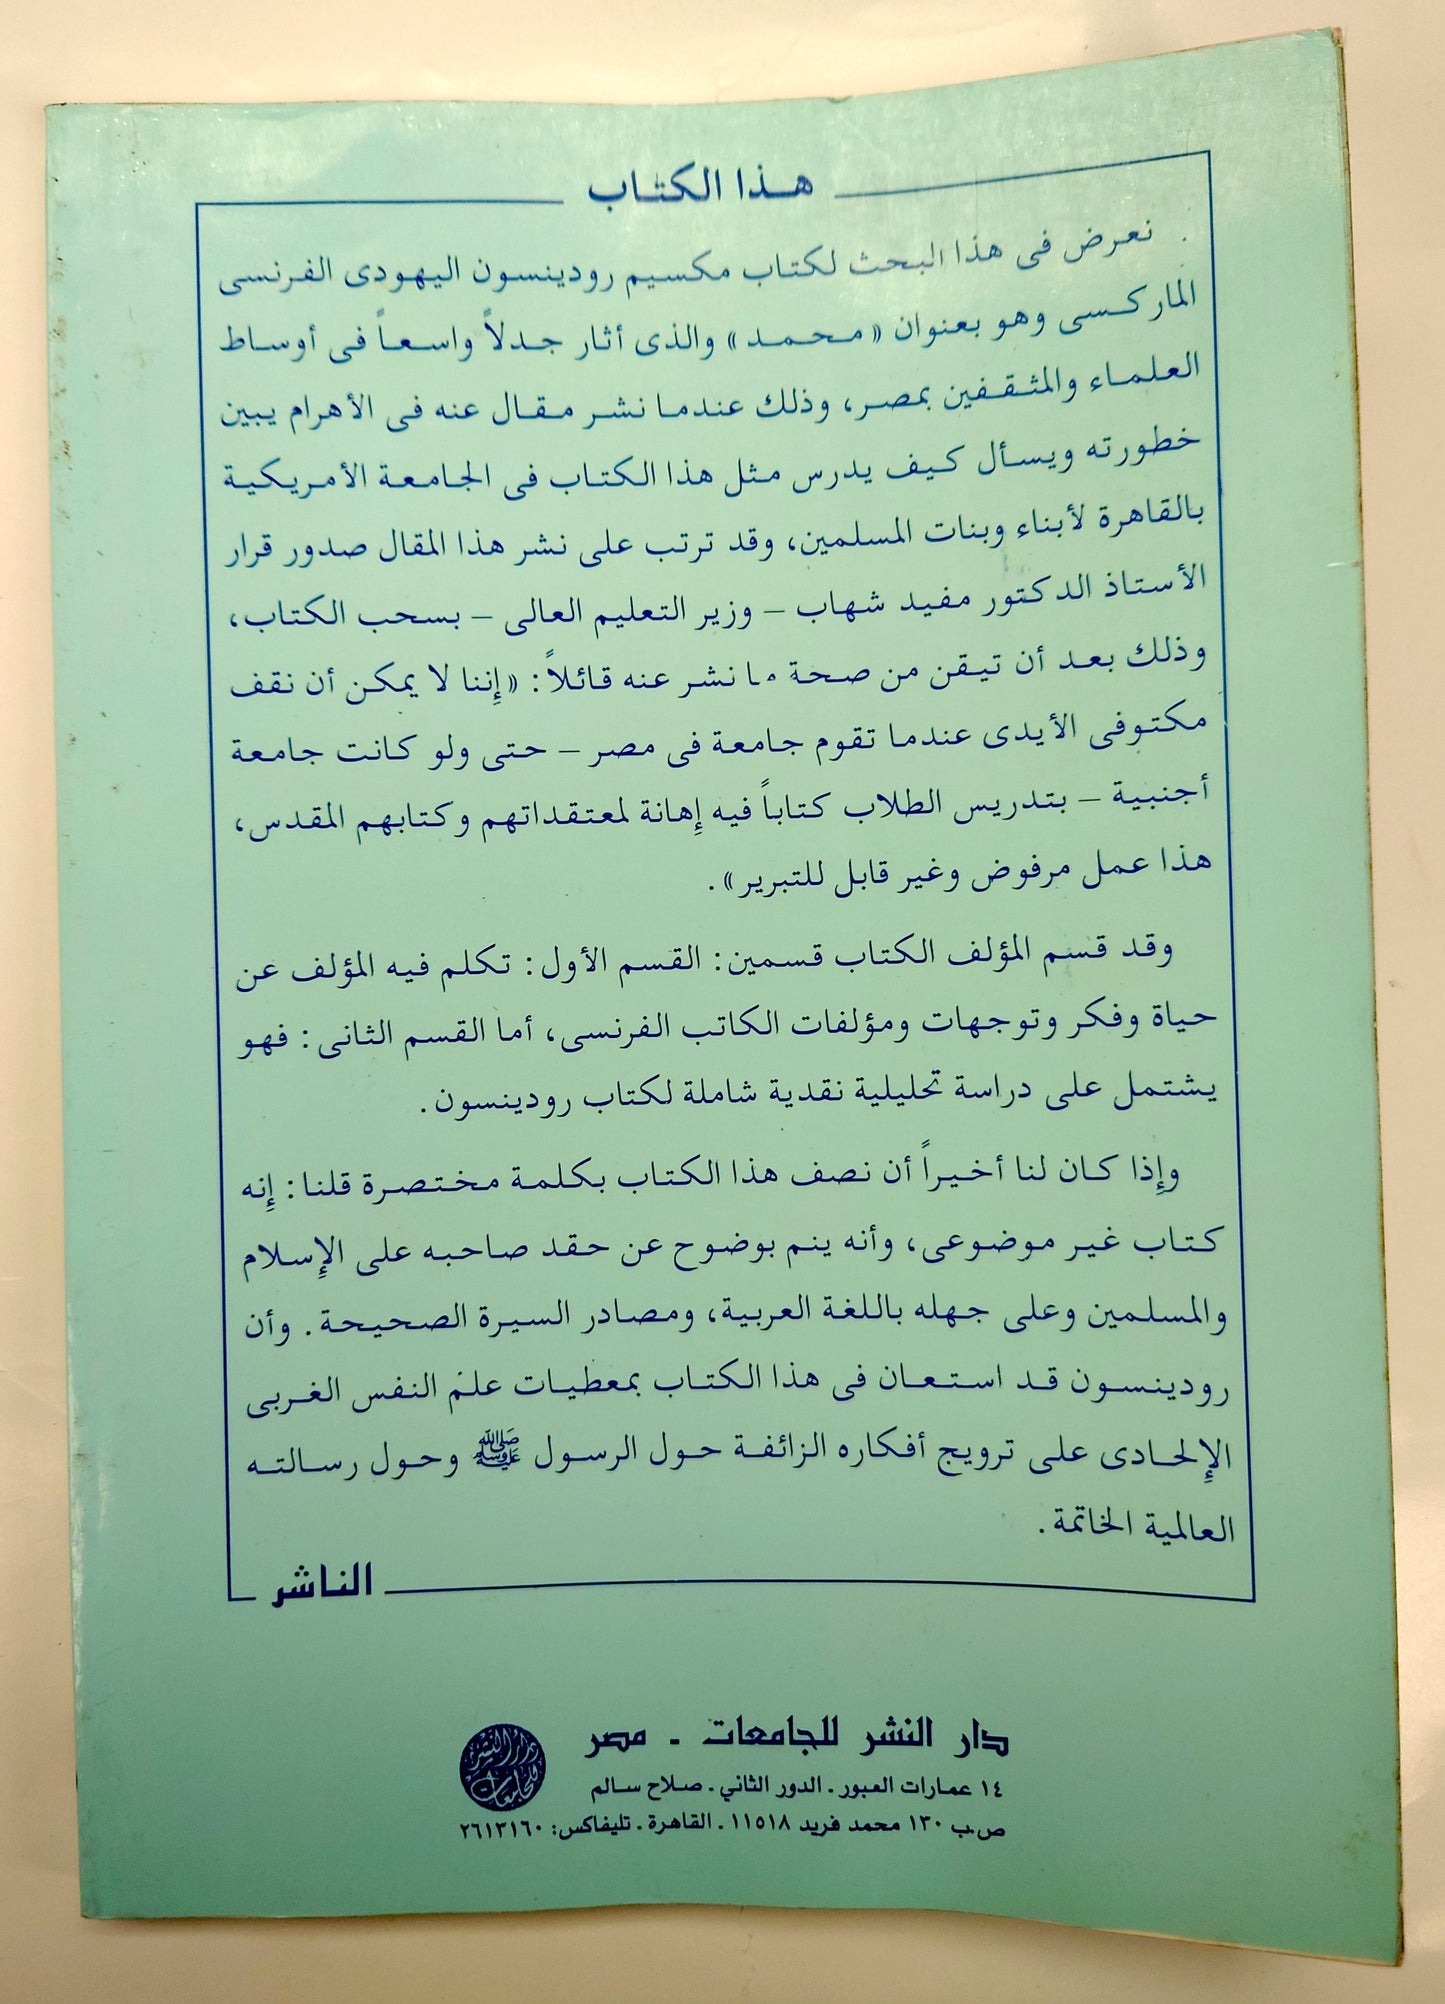 هذا الكتاب
نعرض فى هذا البحث لكتاب مكسيم رودينسون اليهودى الفرنسى
الماركسى وهو بعنوان «محمد» والذى أثار جدلاً واسعاً فى أوساط
العلماء والمثقفين بمصر، وذلك عندما نشر مقال عنه فى الأهرام يبين
خطورته ويسأل كيف يدرس مثل هذا الكتاب فى الجامعة الأمريكية
بالقاهرة لأبناء وبنات المسلمين، وقد ترتب على نشر هذا المقال صدور قرار
الأستاذ الدكتور مفيد شهاب – وزير التعليم العالى – بسحب الكتاب،
وذلك بعد أن تيقن من صحة ما نشر عنه قائلاً: «إننا لا يمكن أن نقف
مكتوفى الأيدى عندما تقوم جامعة فى مصر – حتى ولو كانت جامعة
أجنبية – بتدريس الطلاب كتاباً فيه إهانة لمعتقداتهم وكتابهم المقدس،
هذا عمل مرفوض وغير قابل للتبرير».
وقد قسم المؤلف الكتاب قسمين: القسم الأول: تكلم فيه المؤلف عن
حياة وفكر وتوجهات ومؤلفات الكاتب الفرنسى، أما القسم الثانى: فهو
يشتمل على دراسة تحليلية نقدية شاملة لكتاب رودينسون.
وإذا كان لنا أخيراً أن نصف هذا الكتاب بكلمة مختصرة قلنا: إنه
كتاب غير موضوعى، وأنه ينم بوضوح عن حقد صاحبه على الإسلام
والمسلمين وعلى جهله باللغة العربية، ومصادر السيرة الصحيحة. وأن
رودينسون قد استعان فى هذا الكتاب بمعطيات علم النفس الغربى
الإلحادى على ترويج أفكاره الزائفة حول الرسول ﷺ وحول رسالته
العالمية الخاتمة.
الناشر
دار النشر للجامعات - مصر
دار النشر للجامعات
١٤ عمارات العبور. الدور الثاني. صلاح سالم
ص.ب ١٣٠ محمد فريد ١١٥١٨. القاهرة. تليفاكس: ٢٦١٣١٦٠